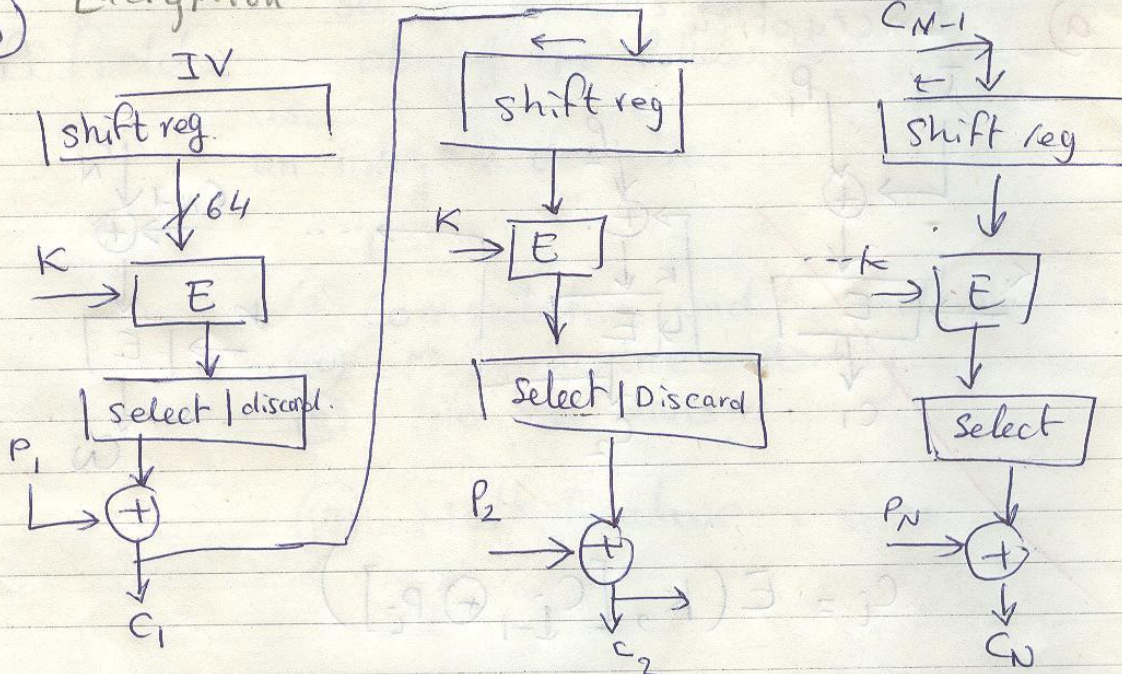 Encryption
IV
shift reg.
64
K
E
select | discard.
P1
+
C1
shift reg
K
E
select | Discard
P2
+
C2
CN-1
shift reg
K
E
select
PN
+
CN
Ci = E(K, Ci-1 ⊕ Pi)